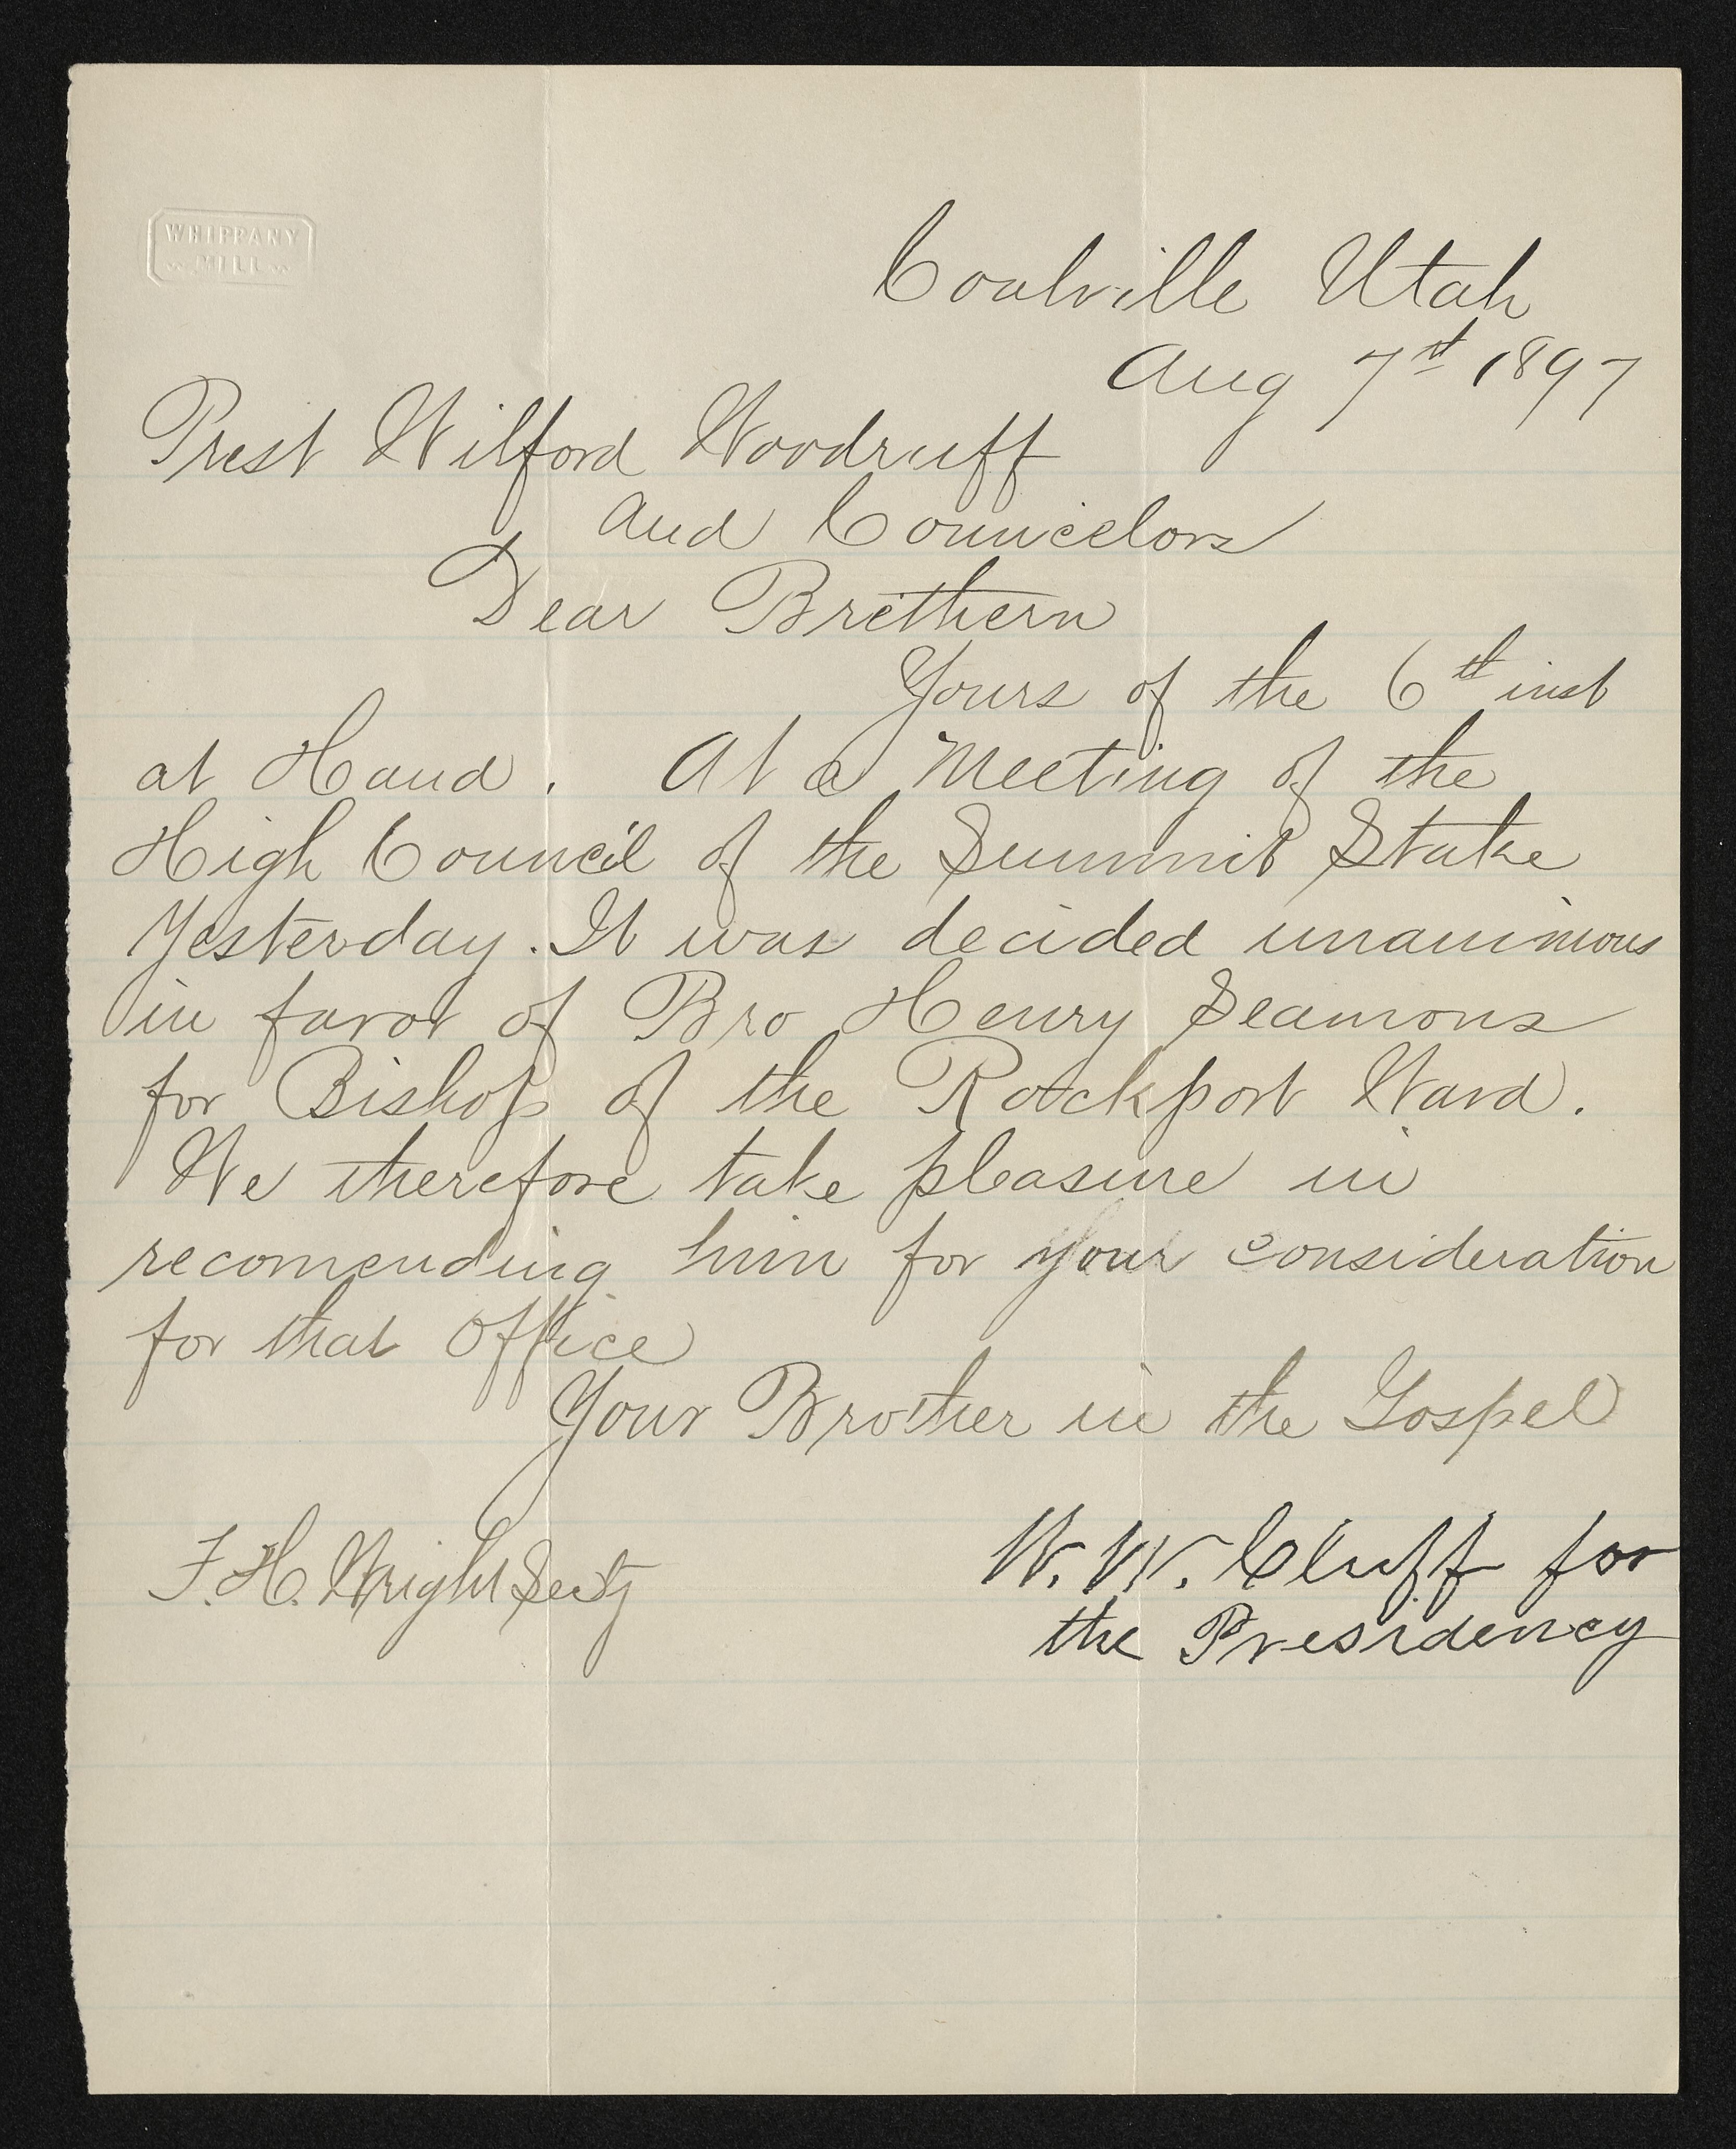 WHIPPANY
MILL
Coalville Utah
Aug 7st 1897
Prest Wilford Woodruff
and Councelors
Dear Brethern
Yours of the 6th inst
at Hand. At a Meeting of the
High Council of the Summit Stake
Yesterday. It was decided unanimous
in favor of Bro Henry Seamons
for Bishop of the Rockport Ward.
We therefore take pleasure in
recomending him for your consideration
for that Office
Your Brother in the Gospel
F. H. Wright Secty
W. W. Cluff for
the Presidency